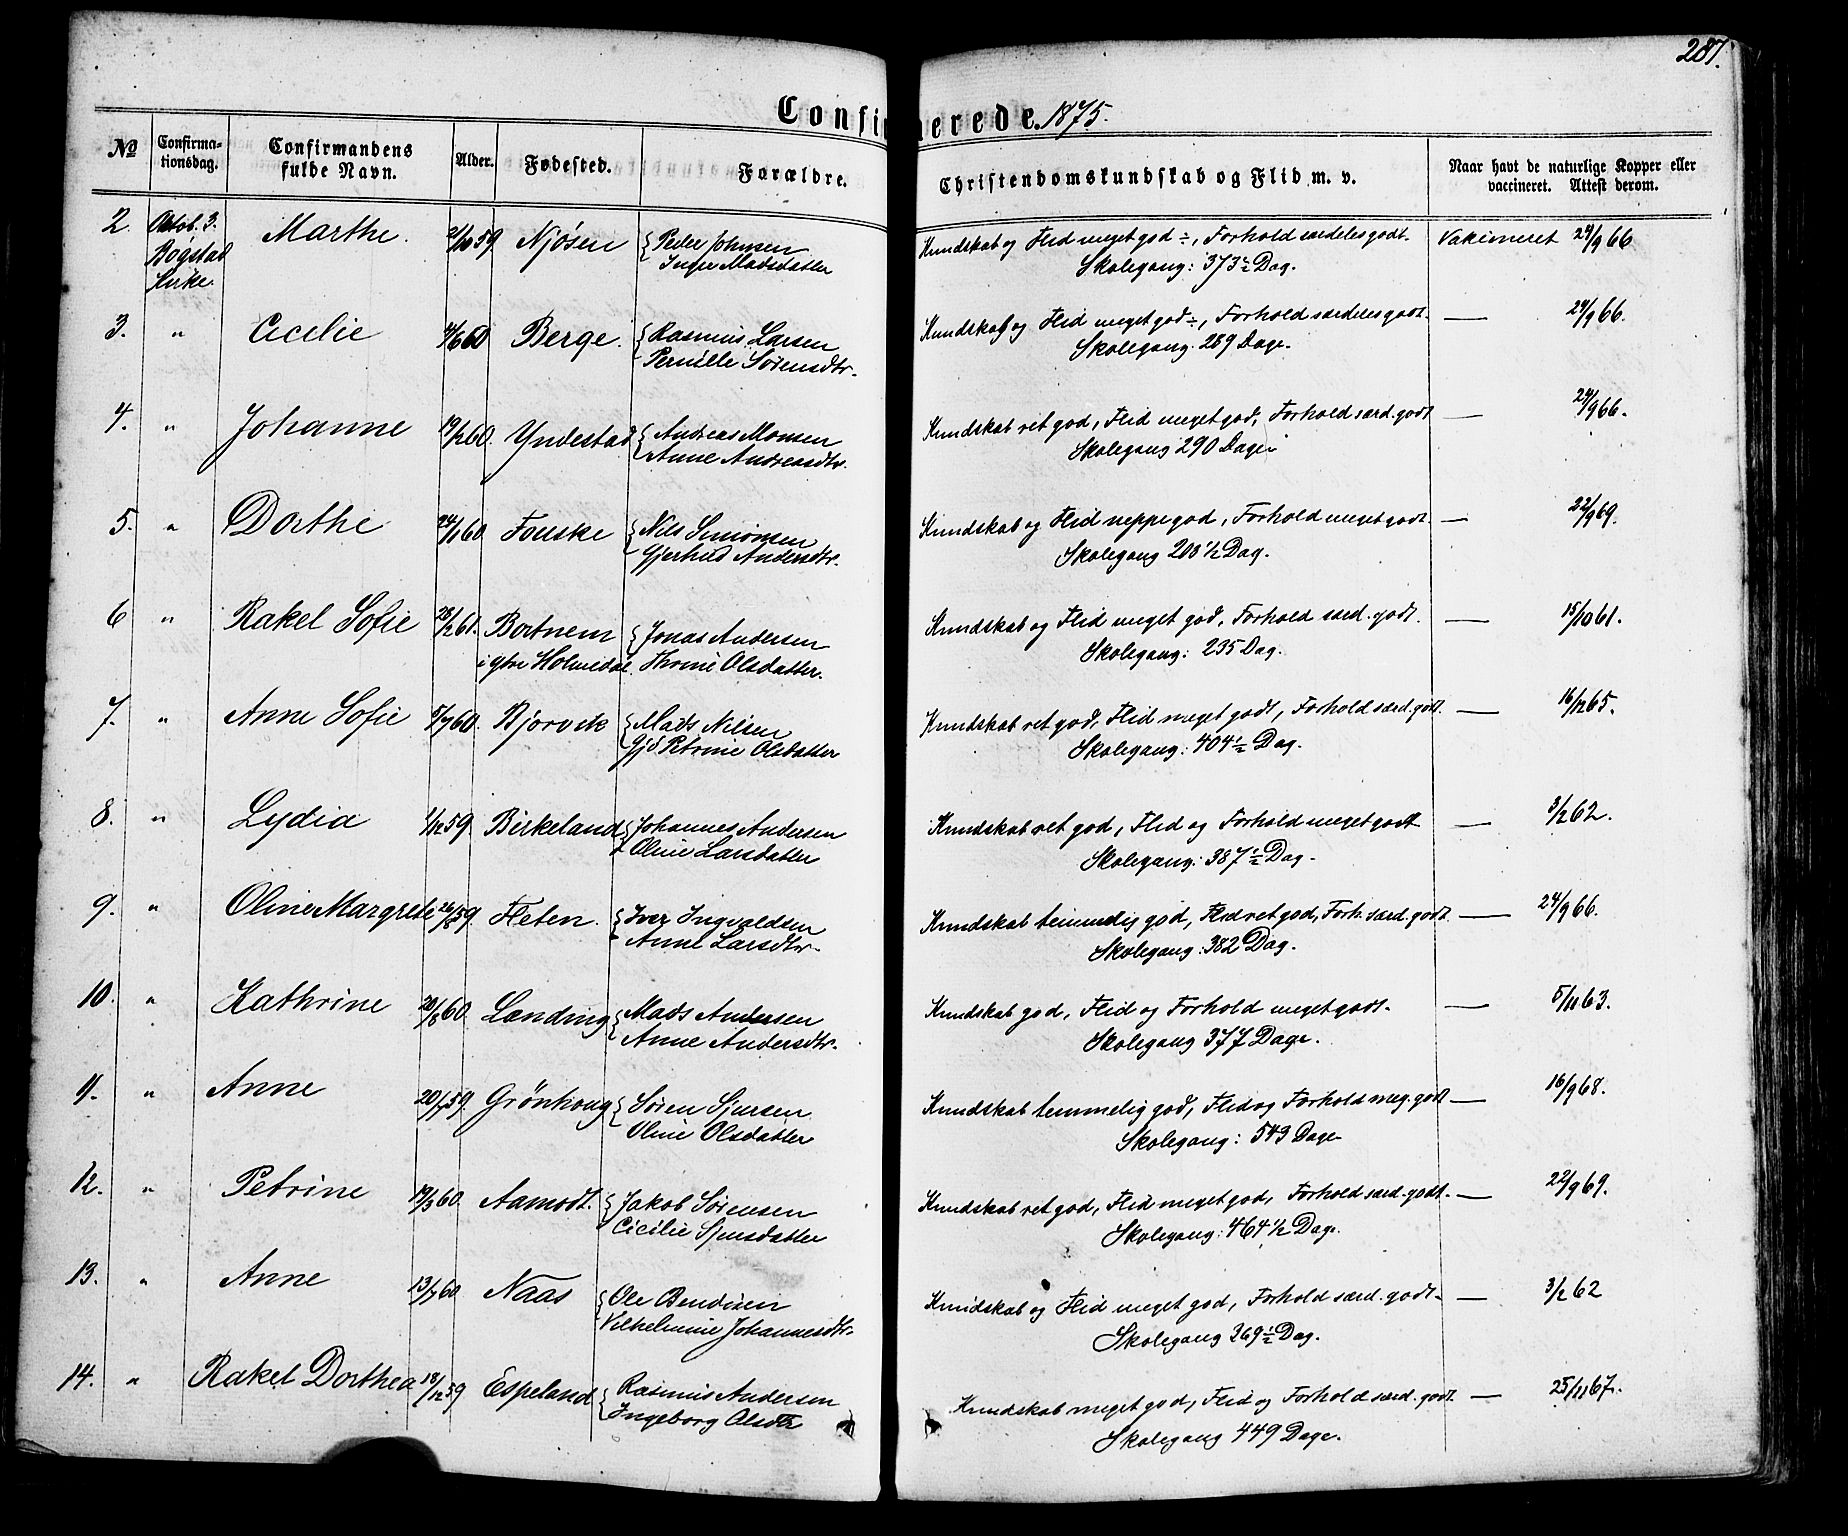 287.
Confirmerede. 1875.
No Confirmationsdag. Confirmandens fulde Navn. Alder. Fødested. Forældre. Christendomskundskab og Flid m. v. Naar havt de naturlige Kopper eller vaccineret. Attest derom.
2 Octob. 3. Marthe. 59 Njøsen Peder Johnsen Kundskab og Flid meget god ÷, Forhold særdeles godt. Vakcineret 24/9 66
Bögstad Inger Madsdatter Skolegang: 373 ½ Dag.
Kirke.
3. " Cecilie 60 Berge. Rasmus Larsen Kundskab og Flid meget god ÷, Forhold særdeles godt. — 24/9 66.
Pernille Sörensdtr. Skolegang. 289 Dage.
4. " Johanne 19/2 60. Yndestad Andreas Monsen Kundskab ret god, Flid meget god, Forhold særd. godt — 24/9 66.
Anne Andreasdtr. Skolegang 290 Dage
5. " Dorthe 24/1 60 Fouske Nils Simonsen Kundskab og Flid neppe god, Forhold meget godt. — 22/9 69.
Gjertrud Andersdtr. Skolegang 208 1/2 Dag.
6 " Rakel Sofie 28/2 61. Bortnem Jonas Andersen Kundskab og Flid meget god, Forhold særd. godt. — 15/10 61.
i ytre Holmedal. Thrine Olsdatter. Skolegang: 235 Dag.
7. " Anne Sofie 5/7 60. Bjorvik Mads Nilsen Kundskab ret god, Flid meget godt, Forhold særd. godt. — 16/12 65.
Gjd Petrine Olsdatter Skolegang: 404 ½ Dag.
8. " Lydia 1/12 59. Birkeland Johannes Andersen Kundskab ret god, Flid og Forhold meget godt — 3/2 62.
Oline Larsdatter Skolegang: 387 ½ Dag.
9. " Oline Margrete 26/8 59. Fleten. Iver Ingvaldsen Kundskab temmelig god, Flid ret god, Forh. særd. godt. — 24/9 66.
Anne Larsdtr. Skolegang: 382 Dag.
10. " Kathrine 20/8 60. Lending Mads Andersen Kundskab god, Flid og Forhold meget godt. — 5/11 63.
Anne Andersdtr. Skolegang 377 Dage.
11. " Anne 20/7 59. Grönhoug Sören Sjursen Kundskab temmelig god, Flid og Forhold meg. godt — 16/9 68.
Oline Olsdatter Skolegang: 543 Dage
12. " Petrine 19/3 60. Aamodt. Jakob Sörensen Kundskab ret god, Flid meget god, Forhold særd. godt. — 22/9 69.
Cicilie Sjursdatter Skolegang: 464 1/2 Dage.
13. " Anne 13/7 60 Naas Ole Bendixen Kundskab og Flid meget god, Forhold særd. godt. — 3/2 62
Vilhelmine Johannesdtr. Skolegang 369 ½ Dag.
14. " Rakel Dorthea 18/12 59 Espeland Rasmus Andersen Kundskab meget god, Flid og Forhold særd. godt — 25/11 67.
Ingeborg Olsdtr Skolegang 449 Dage.